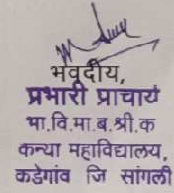 भवदीय,
प्रभारी प्राचार्य
भा.वि.मा.ब.श्री.क
कन्या महाविद्यालय,
कडेगांव जि सांगली